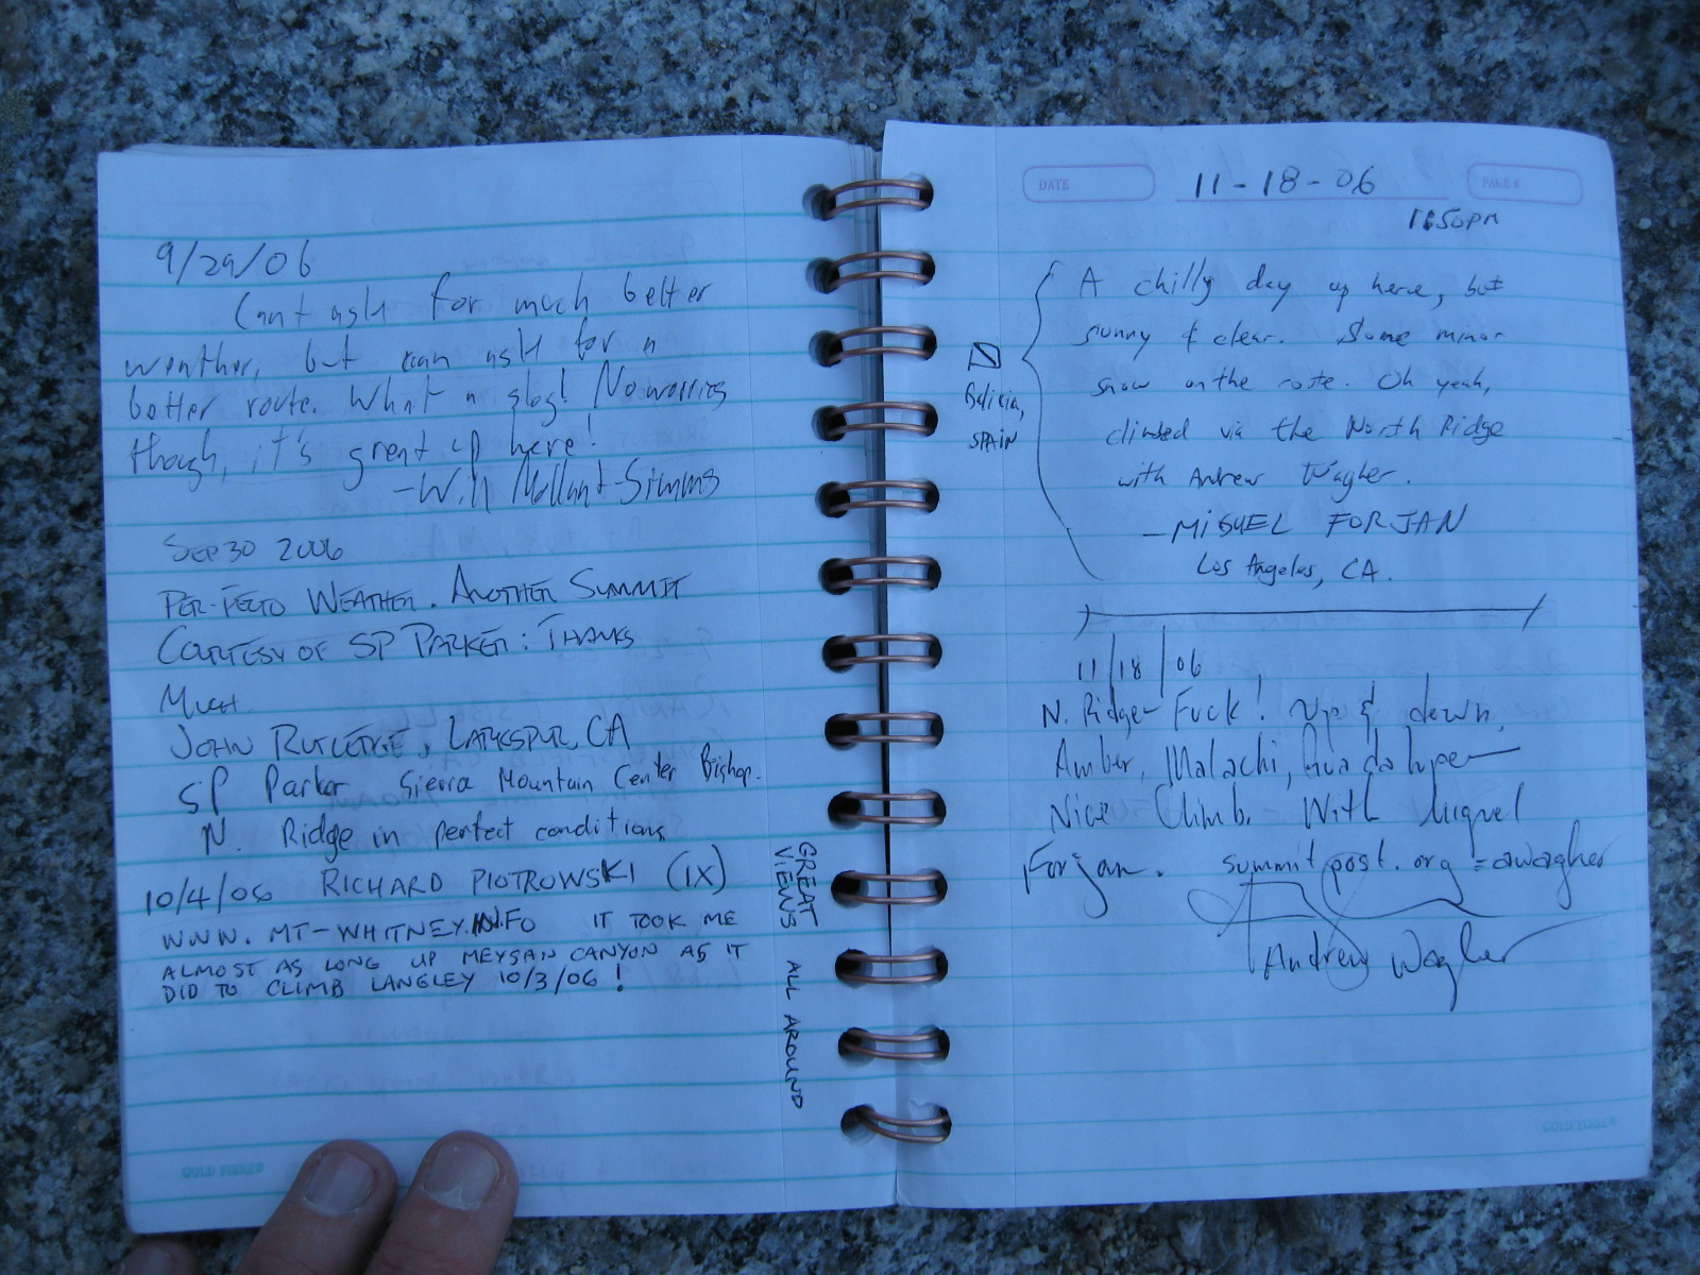 9/29/06
Cant ask for much better
weather, but can ask for a
better route. What a slog! No worries
though, it's great up here!
- Will
Sep 30 2006
PER-FECTO WEATHER. ANOTHER SUMMIT
COURTESY OF SP PARKER: THANKS
MUCH.
JOHN RUTLEDGE, LARKSPUR, CA
SP Parker Sierra Mountain Center Bishop.
N. Ridge in perfect conditions
10/4/06 RICHARD PIOTROWSKI (IX)
WWW.MT-WHITNEY.INFO IT TOOK ME
ALMOST AS LONG UP MEYSAN CANYON AS IT
DID TO CLIMB LANGLEY 10/3/06!
GREAT
VIEWS ALL AROUND
GOLD FIBRE
DATE 11-18-06 PAGE #
A chilly day up here, but
sunny & clear. Some minor
snow on the route. Oh yeah,
climbed via the North Ridge
with Andrew Wagher.
- MIGUEL FORJAN
Los Angeles, CA.
Galicia,
SPAIN
11/18/06
N. Ridge - Fuck! Up & down.
Amber, Malachi, Guadalupe -
Nice Climb. With Miguel
Forjan. summitpost.org = awagher
Andrew Wagher
GOLD FIBRE